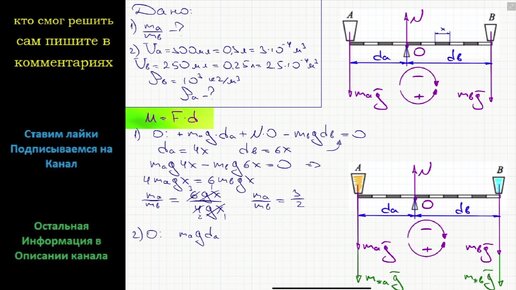 кто смог решить
сам пишите в
комментариях
Ставим лайки
Подписываемся на
Канал
Остальная
Информация в
Описании канала
Дано:
1) mа/mв - ?
2) Vа = 300 мл = 0,3 л = 3·10⁻⁴ м³
Vв = 250 мл = 0,25 л = 2.5·10⁻⁴ м³
ρв = 10³ кг/м³
ρа - ?
M = F·d
1) O: + mаg·dа + N·O - mвgdв = 0
dа = 4x dв = 6x
mаg4x - mвg6x = 0 ⇒
4mаgx = 6mвgx
mа/mв = 6gx/4gx mа/mв = 3/2
3
2
2) O: mаgdа
A N x B
O
dа dв
+
-
mаg mвg
A N B
O
dа dв
-
+
mаg mвg
mжаg mжвg